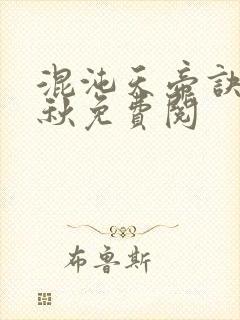 混沌天帝訣
秋免費閱
布魯斯